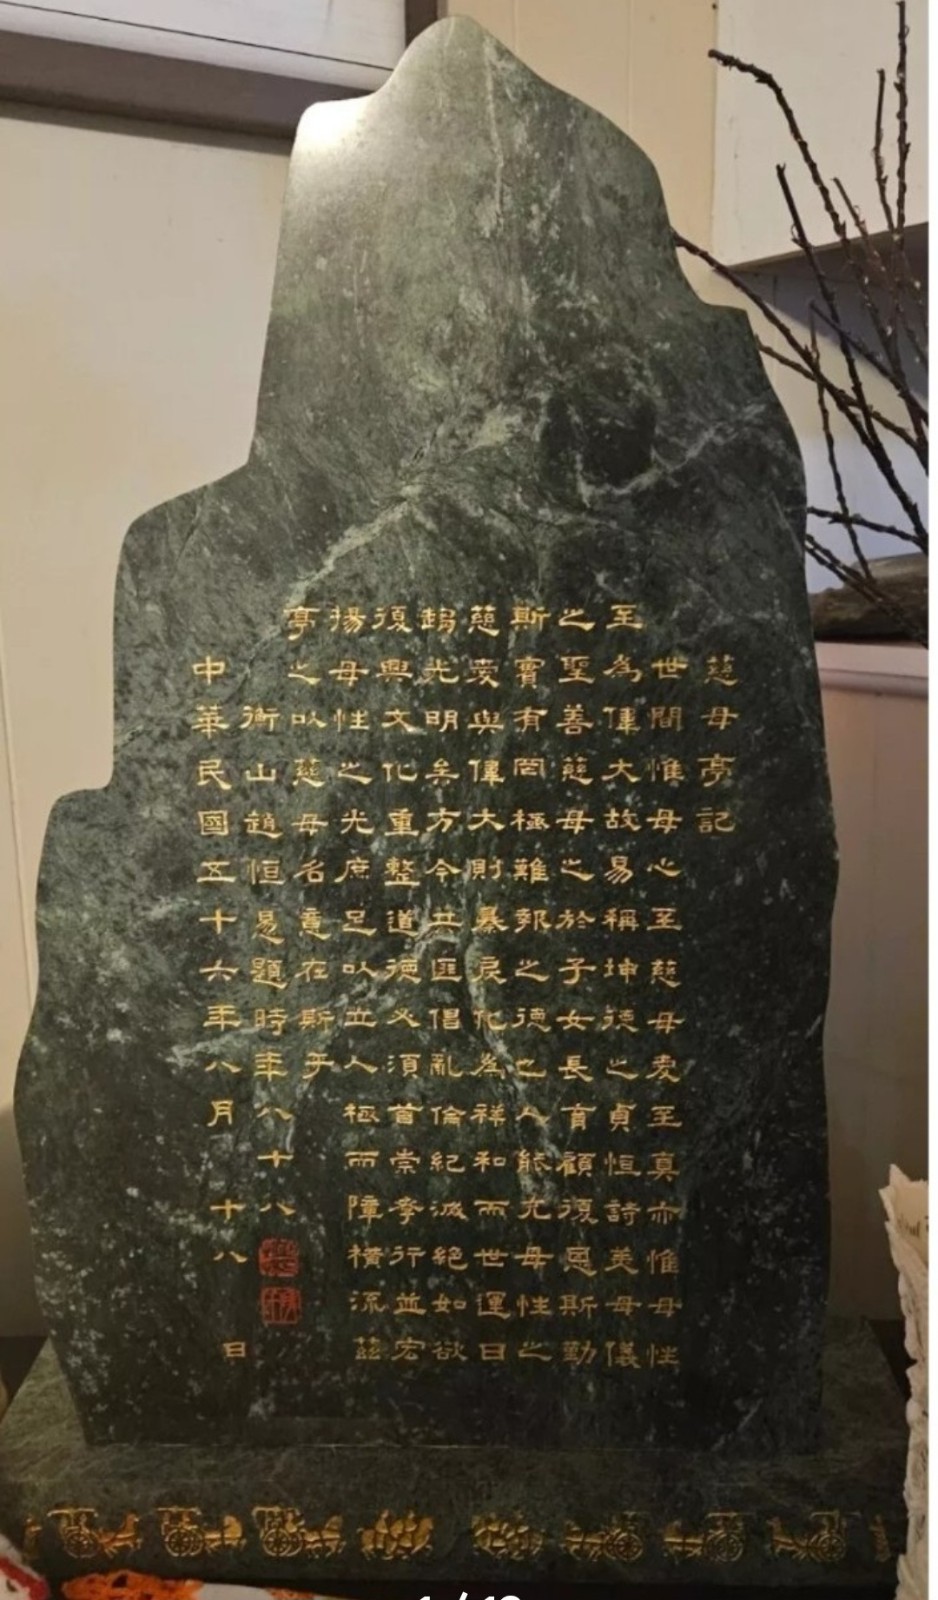 慈母亭記
世間惟母心至慈母愛至真亦惟母性
至為偉大故易稱坤德之貞恒詩美母儀
之聖善慈母之於子女長育顧復恩斯勤
斯實有罔極難報之德也人能充母性之
慈愛與偉大則暴戾化為祥和而世運日
趨光明矣方今共匪倡亂倫紀滅絕如欲
復興文化重整道德必須首崇孝行並宏
揚母性之光庶足以立人極而障橫流茲
亭之以慈母名意在斯乎
衡山趙恒惖題時年八十八
中華民國五十六年八月十八日